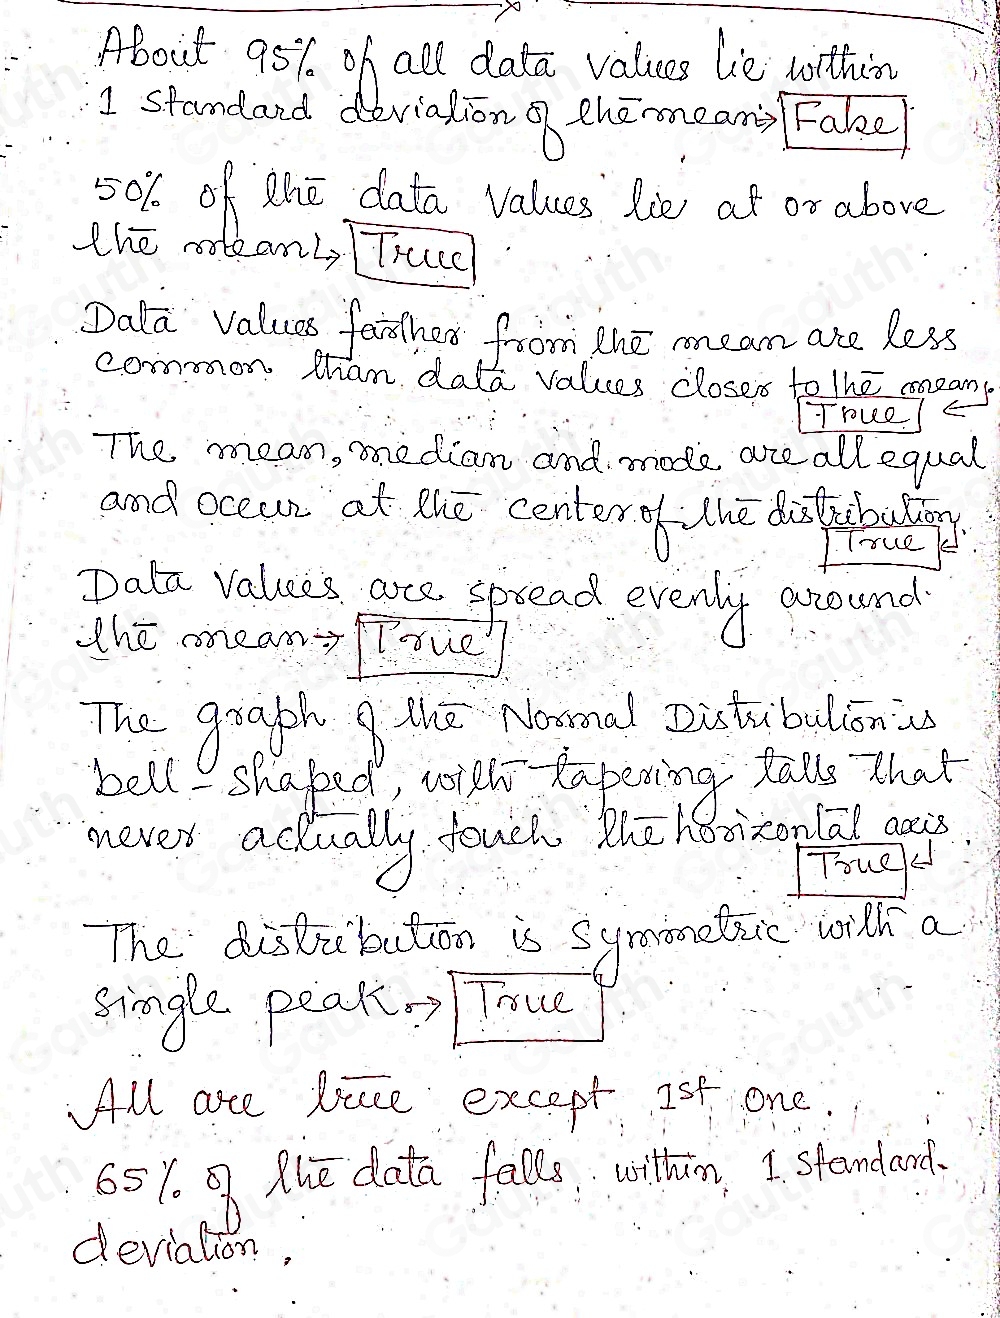 About 95% of all data values lie within
1 standard deviation of the mean → False
50% of the data values lie at or above
the mean → True
Data values farther from the mean are less
common than data values closer to the mean.
True ←
The mean, median and mode are all equal
and occur at the center of the distribution.
True
Data values are spread evenly around
the mean → True
The graph of the Normal Distribution is
bell-shaped, with tapering talls that
never actually touch the horizontal axis.
True
The distribution is symmetric with a
single peak. → True
All are true except 1st one.
65% of the data falls within 1 standard
deviation.